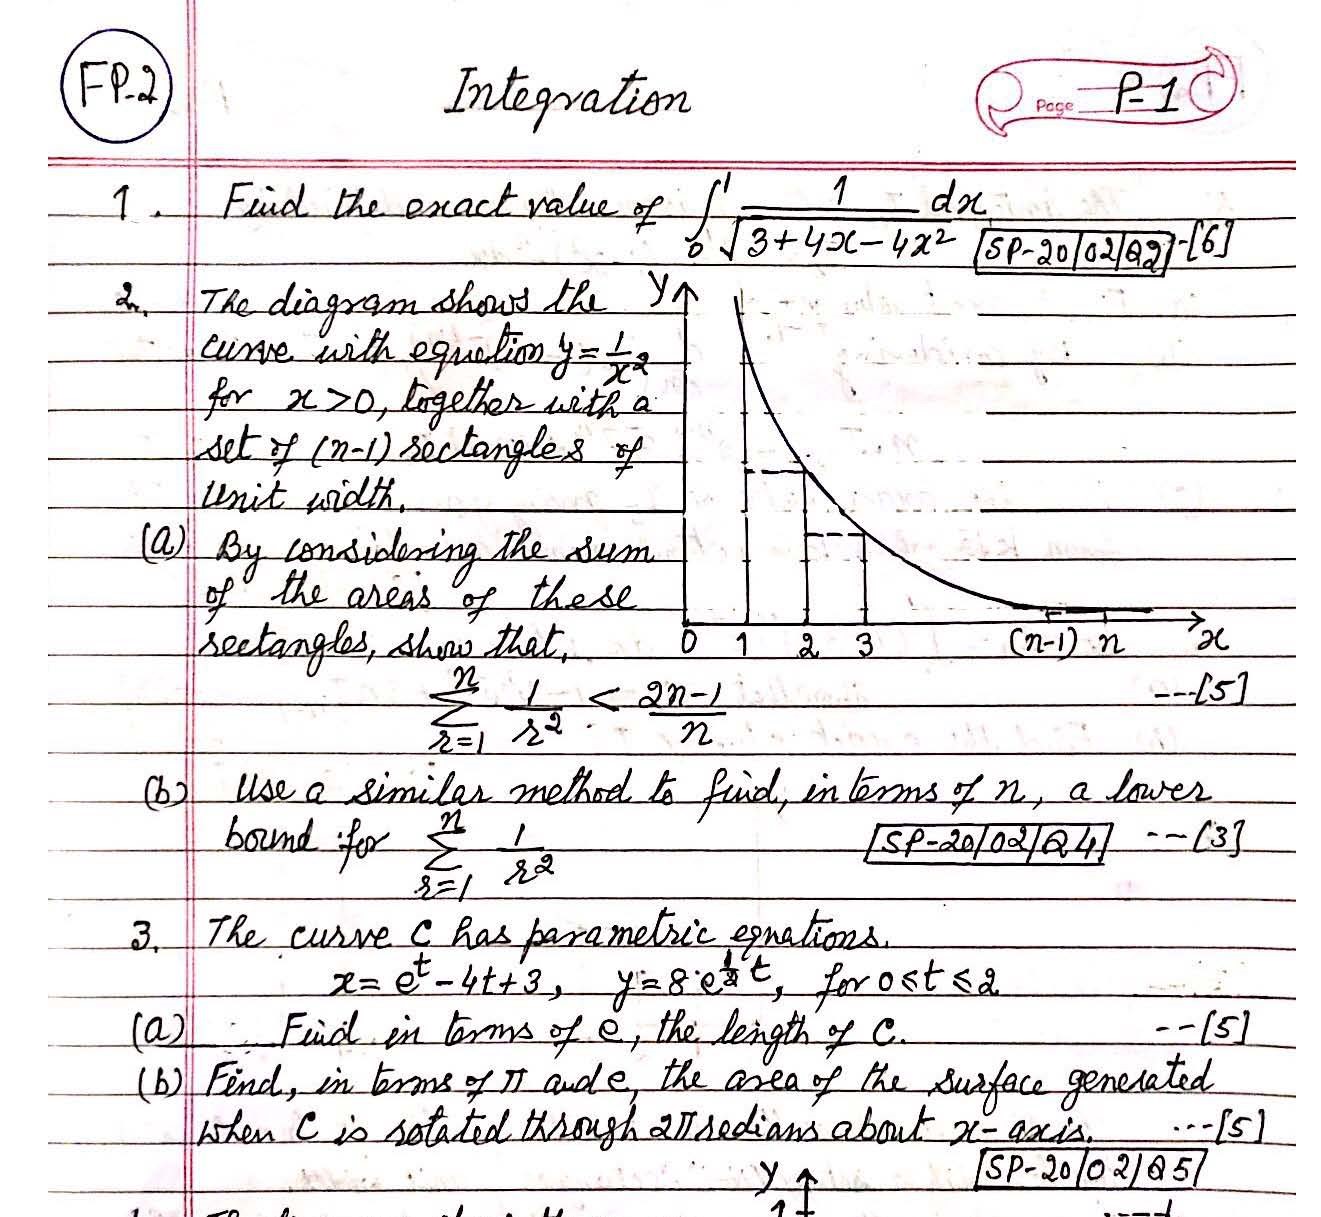 FP-2
Integration
Page P-1
1. Find the exact value of ∫₀¹ 1/√(3+4x-4x²) dx SP-20/02/Q2 -[6]
2. The diagram shows the
curve with equation y=1/x²
for x>0, together with a
set of (n-1) rectangles of
Unit width.
(a) By considering the sum
of the areas of these
rectangles, show that,
y
0 1 2 3 (n-1) n x
∑_{r=1}^{n} 1/r² < (2n-1)/n ---[5]
(b) Use a similar method to find, in terms of n, a lower
bound for ∑_{r=1}^{n} 1/r² SP-20/02/Q4 ---[3]
3. The curve C has parametric equations.
x= e^t - 4t+3, y=8 e^{½t}, for 0≤t≤2
(a) Find in terms of e, the length of C. --[5]
(b) Find, in terms of π and e, the area of the surface generated
when C is rotated through 2π redians about x-axis. ---[5]
SP-20/02/Q5
y
1